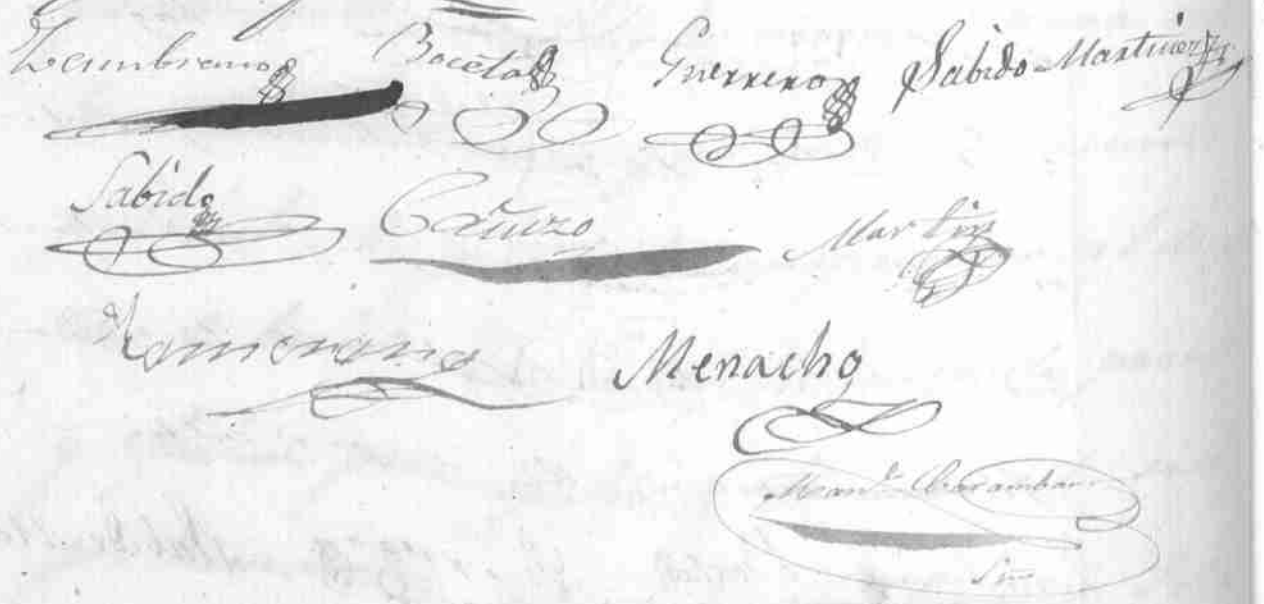 Zambrano Boceta Guerrero Sabido Martinez
Sabido Cañizo Martin
Zamorano Menacho
Man.<sup>l</sup> Barambar
Srio